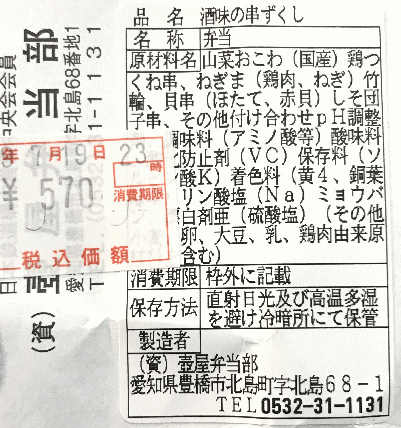 品名 酒味の串ずくし
名称 弁当
原材料名 山菜おこわ（国産）鶏つくね串、ねぎま（鶏肉、ねぎ）竹輪、貝串（ほたて、赤貝）しそ団子串、その他付け合わせpH調整
調味料（アミノ酸等）酸味料
防止剤（VC）保存料（ソ
ン酸K）着色料（黄4、銅葉
リン酸塩（Na）ミョウバ
白剤亜（硫酸塩）（その他
卵、大豆、乳、鶏肉由来原
含む）
消費期限 枠外に記載
保存方法 直射日光及び高温多湿を避け冷暗所にて保管
製造者
（資）壺屋弁当部
愛知県豊橋市北島町字北島68-1
TEL 0532-31-1131
年 7月19日 23時
¥ 570 消費期限
税込価額
中央会会員
当部
字北島68番地1
（資）